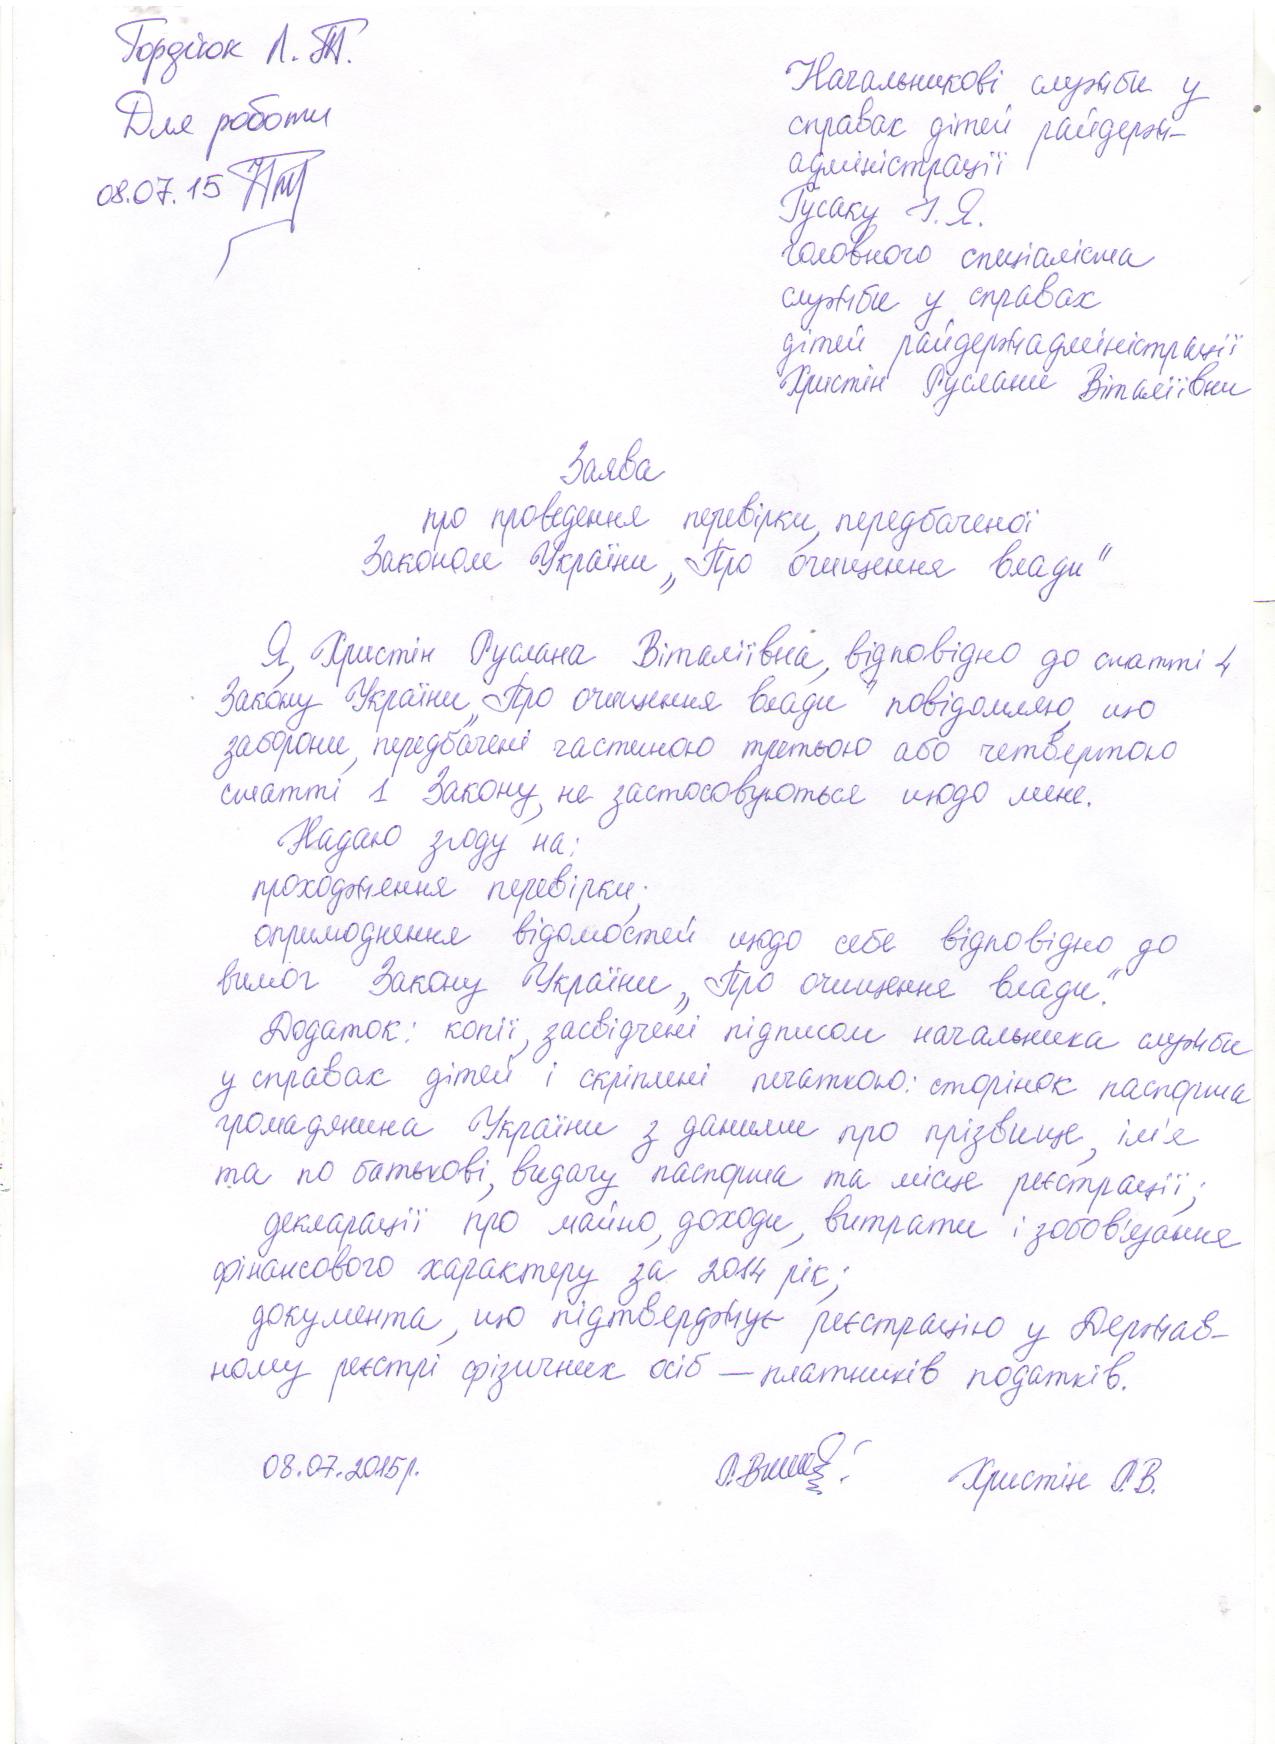 Гордіюк Л. Т.
Для роботи
08.07.15
Начальникові служби у
справах дітей райдерж-
адміністрації
Гусаку І. Я.
головного спеціаліста
служби у справах
дітей райдержадміністрації
Христін Руслани Віталіївни
Заява
про проведення перевірки, передбаченої
Законом України „Про очищення влади"
Я, Христін Руслана Віталіївна, відповідно до статті 4
Закону України „Про очищення влади" повідомляю, що
заборони, передбачені частиною третьою або четвертою
статті 1 Закону, не застосовуються щодо мене.
Надаю згоду на:
проходження перевірки;
оприлюднення відомостей щодо себе відповідно до
вимог Закону України „Про очищення влади".
Додаток: копії, засвідчені підписом начальника служби
у справах дітей і скріплені печаткою: сторінок паспорта
громадянина України з даними про прізвище, ім'я
та по батькові, видачу паспорта та місце реєстрації;
декларації про майно, доходи, витрати і зобов'язання
фінансового характеру за 2014 рік;
документа, що підтверджує реєстрацію у Держав-
ному реєстрі фізичних осіб — платників податків.
08.07.2015р. Христін Р.В.